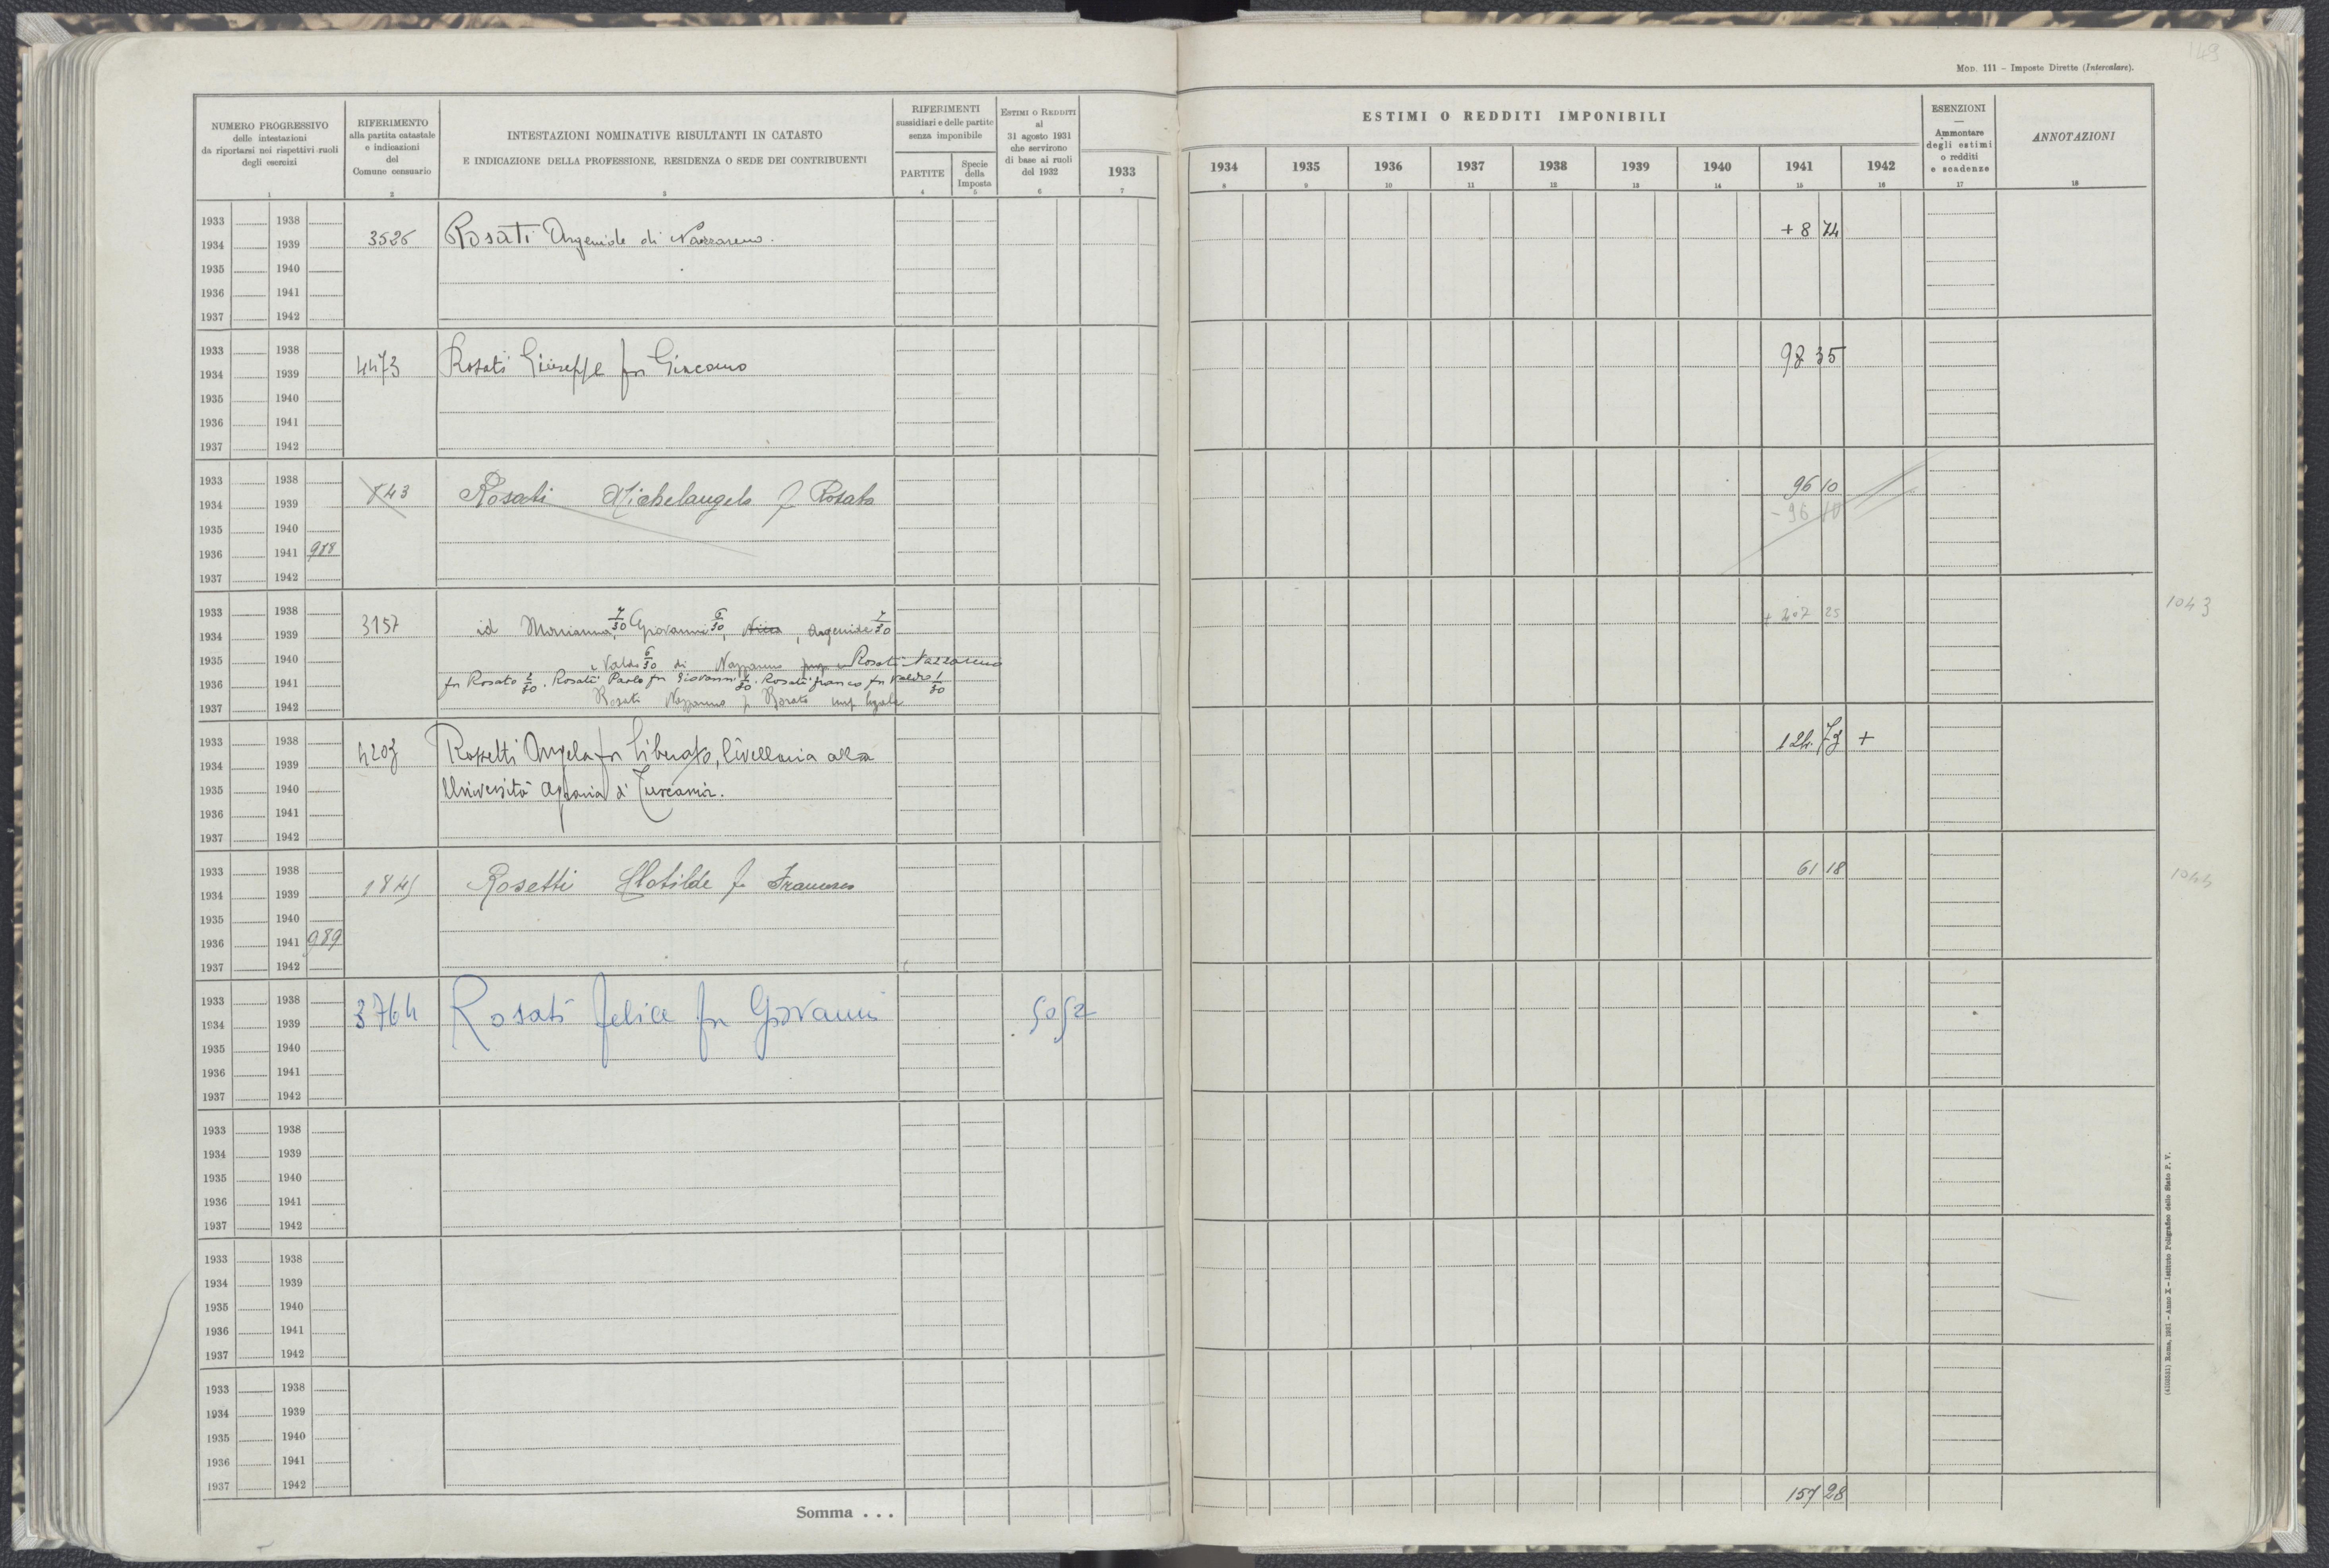 149
MOD. 111 - Imposte Dirette (Intercalare).
NUMERO PROGRESSIVO
delle intestazioni
da riportarsi nei rispettivi ruoli
degli esercizi
1
RIFERIMENTO
alla partita catastale
e indicazioni
del
Comune censuario
2
INTESTAZIONI NOMINATIVE RISULTANTI IN CATASTO
E INDICAZIONE DELLA PROFESSIONE, RESIDENZA O SEDE DEI CONTRIBUENTI
3
RIFERIMENTI
sussidiari e delle partite
senza imponibile
PARTITE
4
Specie
della
Imposta
5
ESTIMI O REDDITI
al
31 agosto 1931
che servirono
di base ai ruoli
del 1932
6
1933
7
ESTIMI O REDDITI IMPONIBILI
1934 1935 1936 1937 1938 1939 1940 1941 1942
8 9 10 11 12 13 14 15 16
ESENZIONI
—
Ammontare
degli estimi
o redditi
e scadenze
17
ANNOTAZIONI
18
1933 1938
1934 1939 3526 Rosati Argenide di Nazzareno. + 8 74
1935 1940
1936 1941
1937 1942
1933 1938
1934 1939 4473 Rosati Giuseppe fu Giacomo 98 35
1935 1940
1936 1941
1937 1942
1933 1938
1934 1939 843 Rosati Michelangelo f Rosato 96 10
- 96 10
1935 1940
1936 1941 988
1937 1942
1933 1938 1043
1934 1939 3157 id Marianna 7/30, Giovanni 6/30, Argenide 7/30 + 207 25
1935 1940 e Valdo 6/30 di Nazzareno Rosati Nazzareno
1936 1941 fu Rosato 2/30. Rosati Paolo fu Giovanni 1/30. Rosati Franco fu Valdo 1/30
1937 1942 Rosati Nazzareno f Rosato usuf legale
1933 1938
1934 1939 4203 Rossetti Angela fu Liberato, livellaria alla 124. 73 +
1935 1940 Università Agraria di Tuscania.
1936 1941
1937 1942
1933 1938
1934 1939 1845 Rosetti Clotilde fu Francesco 61 18 1044
1935 1940
1936 1941 989
1937 1942
1933 1938
1934 1939 3764 Rosati Felice fu Giovanni 50 52
1935 1940
1936 1941
1937 1942
1933 1938
1934 1939
1935 1940
1936 1941
1937 1942
1933 1938
1934 1939
1935 1940
1936 1941
1937 1942
1933 1938
1934 1939
1935 1940
1936 1941
1937 1942
Somma . . . 157 28
Roma, 1931 - Anno X - Istituto Poligrafico dello Stato P. V.